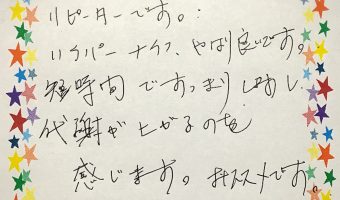 リピーターです。
ハイパーナイフ、やはり良いです。
短時間ですっきりしますし
代謝が上がるのを
感じます。オススメです。